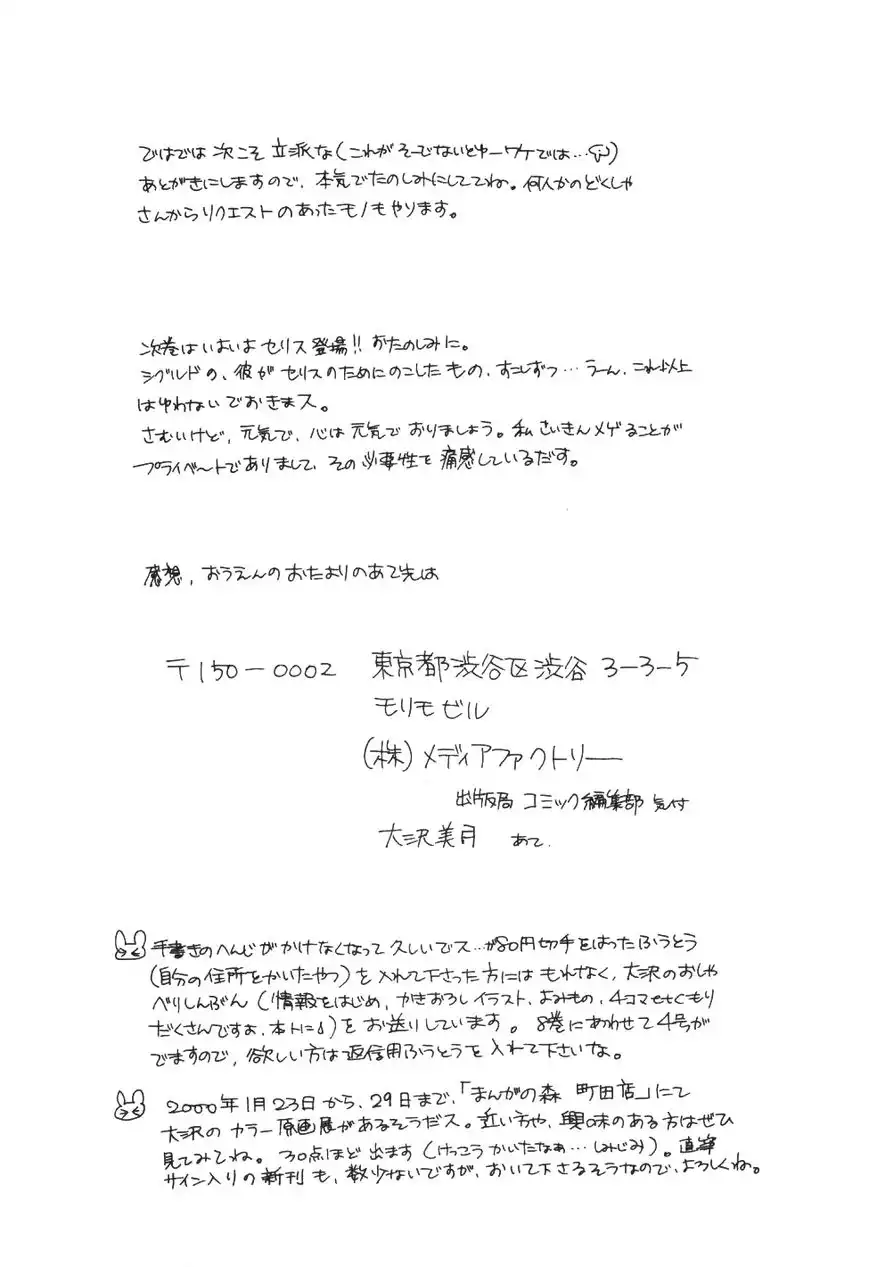 ではでは 次こそ 立派な(これがそーでないとゆーワケでは…)
あとがきにしますので、本気でたのしみにしててね。何人かのどくしゃ
さんからリクエストのあったモノもやります。
次巻はいよいよ セリス 登場!! おたのしみに。
シグルドの、彼が セリスのためにのこしたもの、すこしずつ… うーん、これ以上
はゆわないでおきまス。
さむいけど、元気で、心は元気で おりましょう。私さいきんメゲることが
プライベートでありまして、その必要性を痛感しているだす。
感想、おうえんのおたよりのあて先は
〒150-0002 東京都渋谷区渋谷 3-3-5
モリモビル
(株)メディアファクトリー
出版局 コミック編集部 気付
大沢美月 あて.
手書きのへんじがかけなくなって久しいでス…が80円切手をはったふうとう
(自分の住所をかいたやつ)を入れて下さった方にはもれなく、大沢のおしゃ
べりしんぶん(情報をはじめ、かきおろしイラスト、よみもの、4コマetcもり
だくさんですよ、本トに♪)をお送りしています。8巻にあわせて4号が
でますので、欲しい方は返信用ふうとうを入れて下さいな。
2000年1月23日から、29日まで、「まんがの森 町田店」にて
大沢のカラー原画展があるそうだス。近い方や、興味のある方はぜひ
見てみてね。30点ほど出ます(けっこうかいたなぁ…しみじみ)。直筆
サイン入りの新刊も、数少ないですが、おいて下さるそうなので、よろしくね。